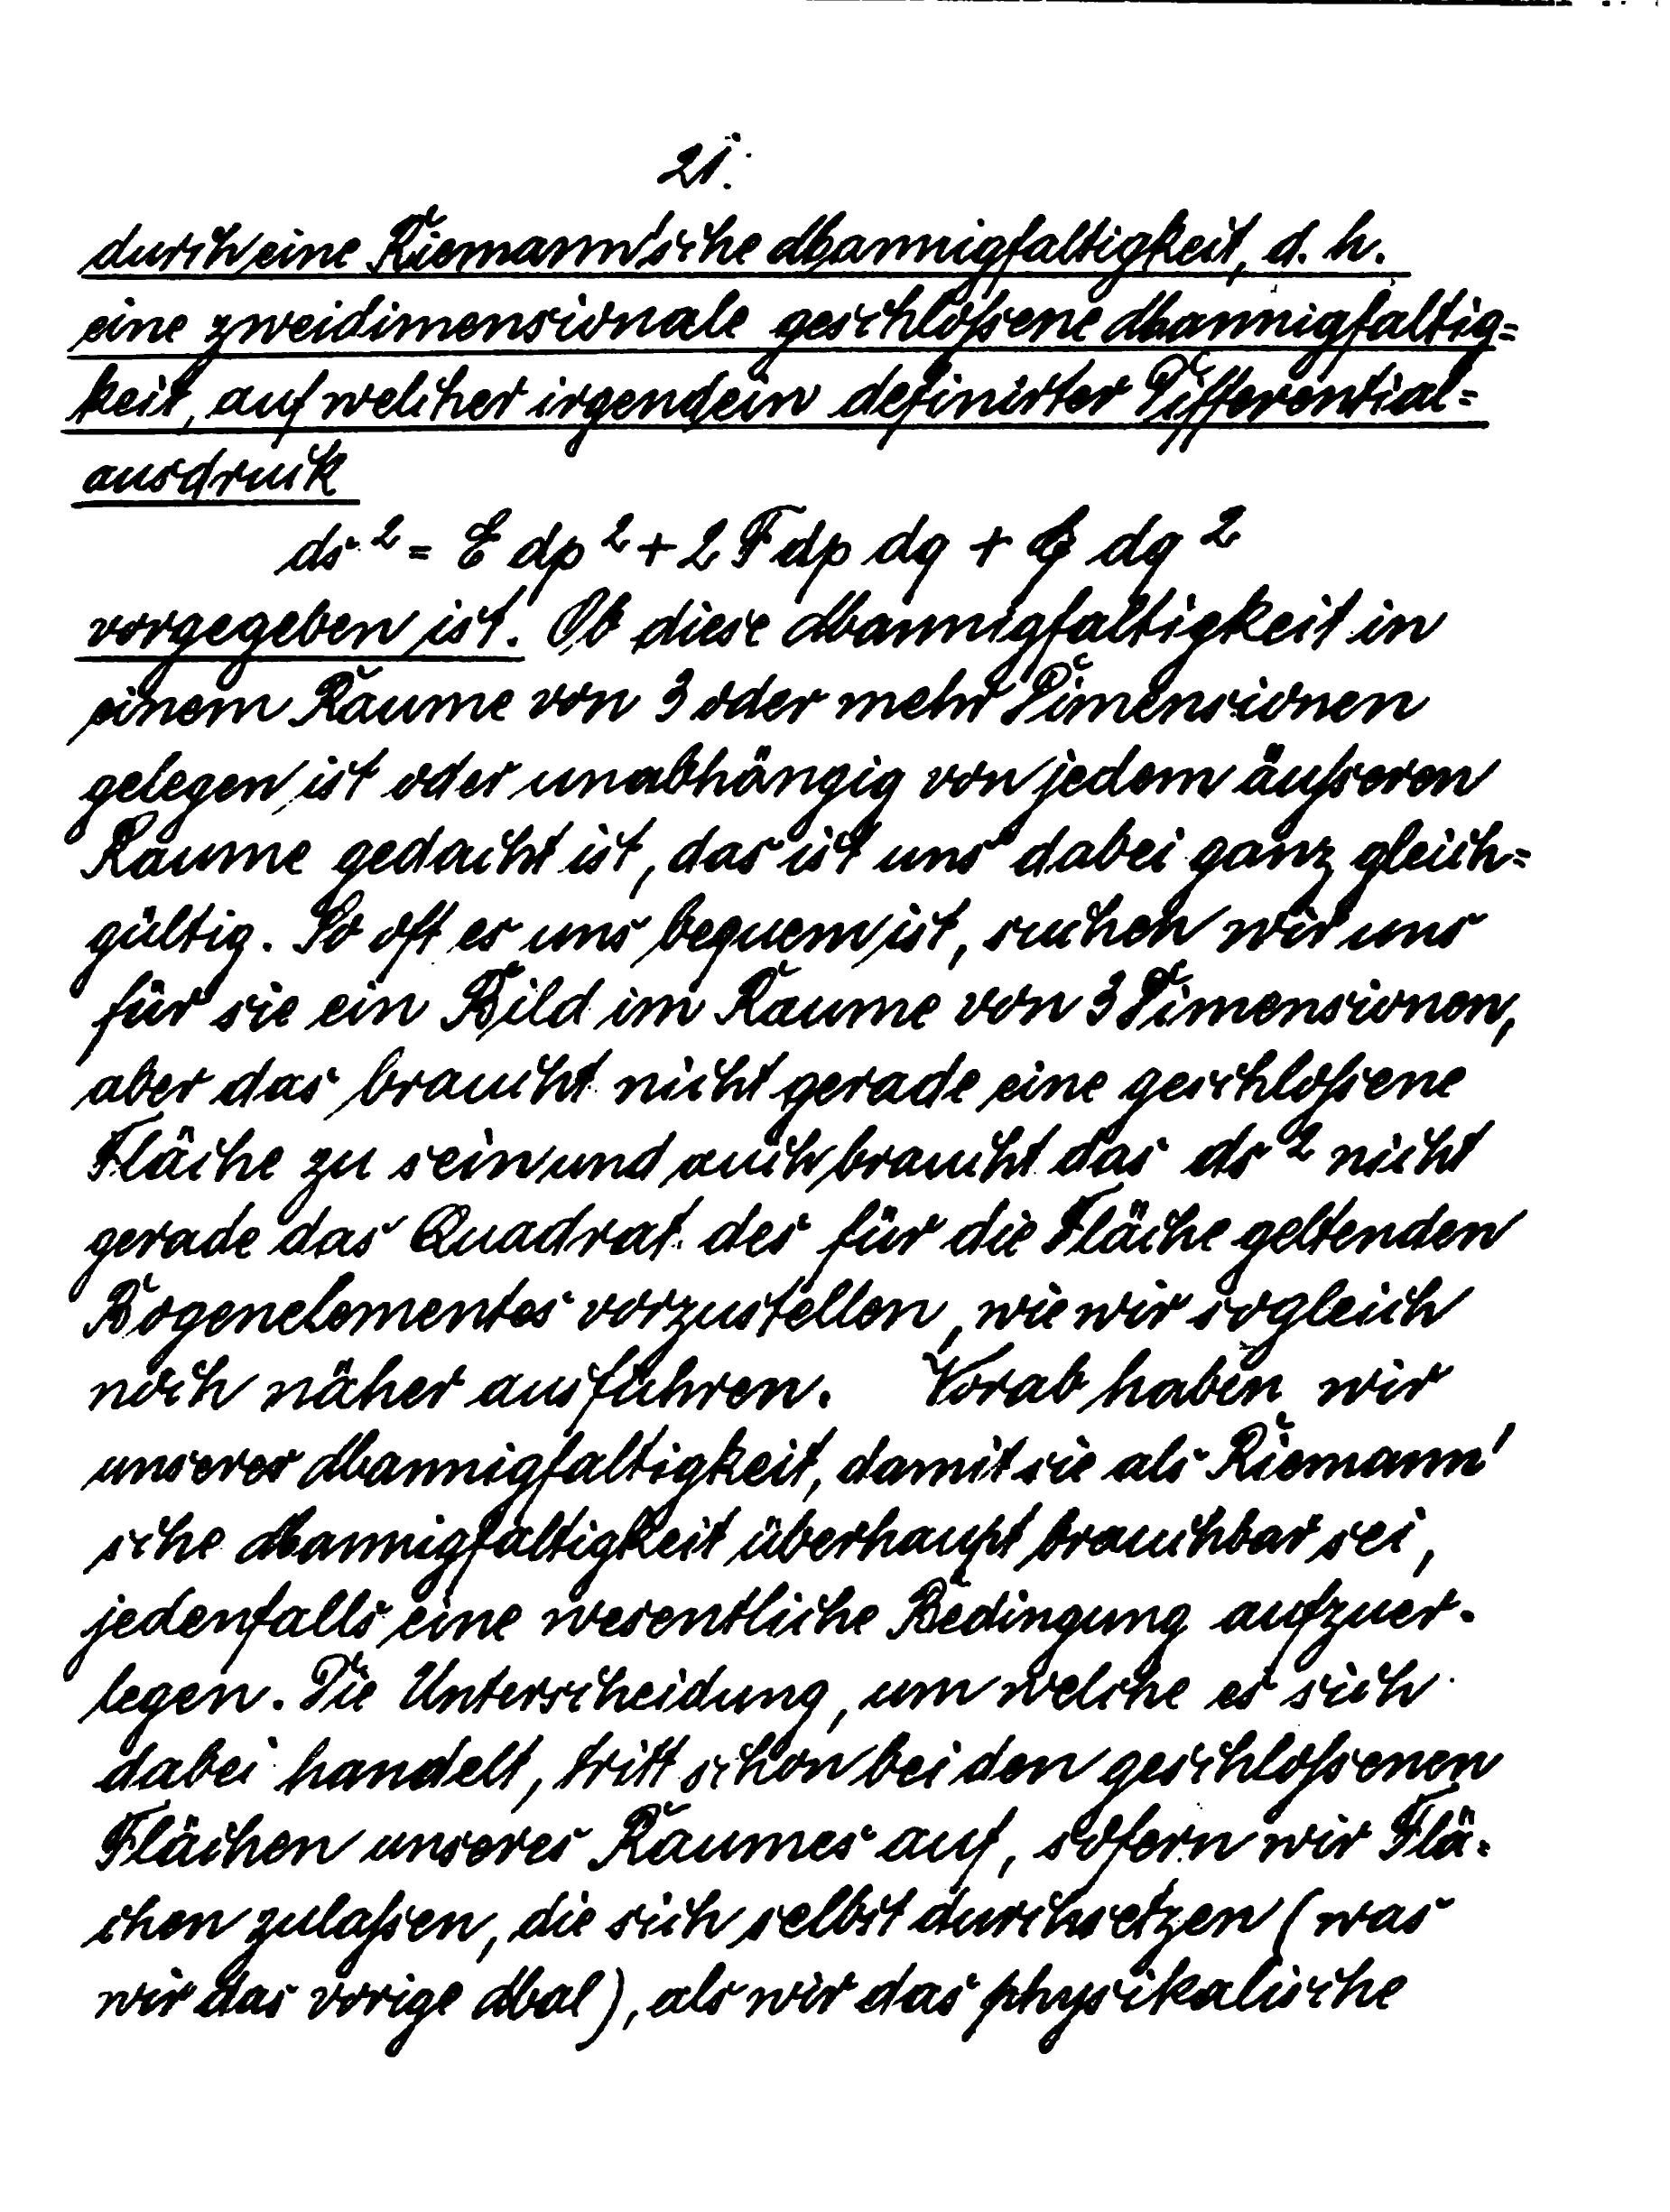 21.
durch eine Riemann'sche Mannigfaltigkeit, d. h.
eine zweidimensionale geschloßene Mannigfaltig=
keit, auf welcher irgendein definirter Differential=
ausdruck
ds² = E dp² + 2 F dp dq + G dq²
vorgegeben ist. Ob diese Mannigfaltigkeit in
einem Raume von 3 oder mehr Dimensionen
gelegen ist oder unabhängig von jedem äußeren
Raume gedacht ist, das ist uns dabei ganz gleich=
gültig. So oft es uns bequem ist, suchen wir uns
für sie ein Bild im Raume von 3 Dimensionen,
aber das braucht nicht gerade eine geschloßene
Fläche zu sein und auch braucht das ds² nicht
gerade das Quadrat des für die Fläche geltenden
Bogenelementes vorzustellen, wie wir sogleich
noch näher ausführen. Vorab haben wir
unserer Mannigfaltigkeit, damit sie als Riemann'
sche Mannigfaltigkeit überhaupt brauchbar sei,
jedenfalls eine wesentliche Bedingung aufzuer-
legen. Die Unterscheidung, um welche es sich
dabei handelt, tritt schon bei den geschloßenen
Flächen unseres Raumes auf, sofern wir Flä-
chen zulaßen, die sich selbst durchsetzen (was
wir das vorige Mal), als wir das physikalische